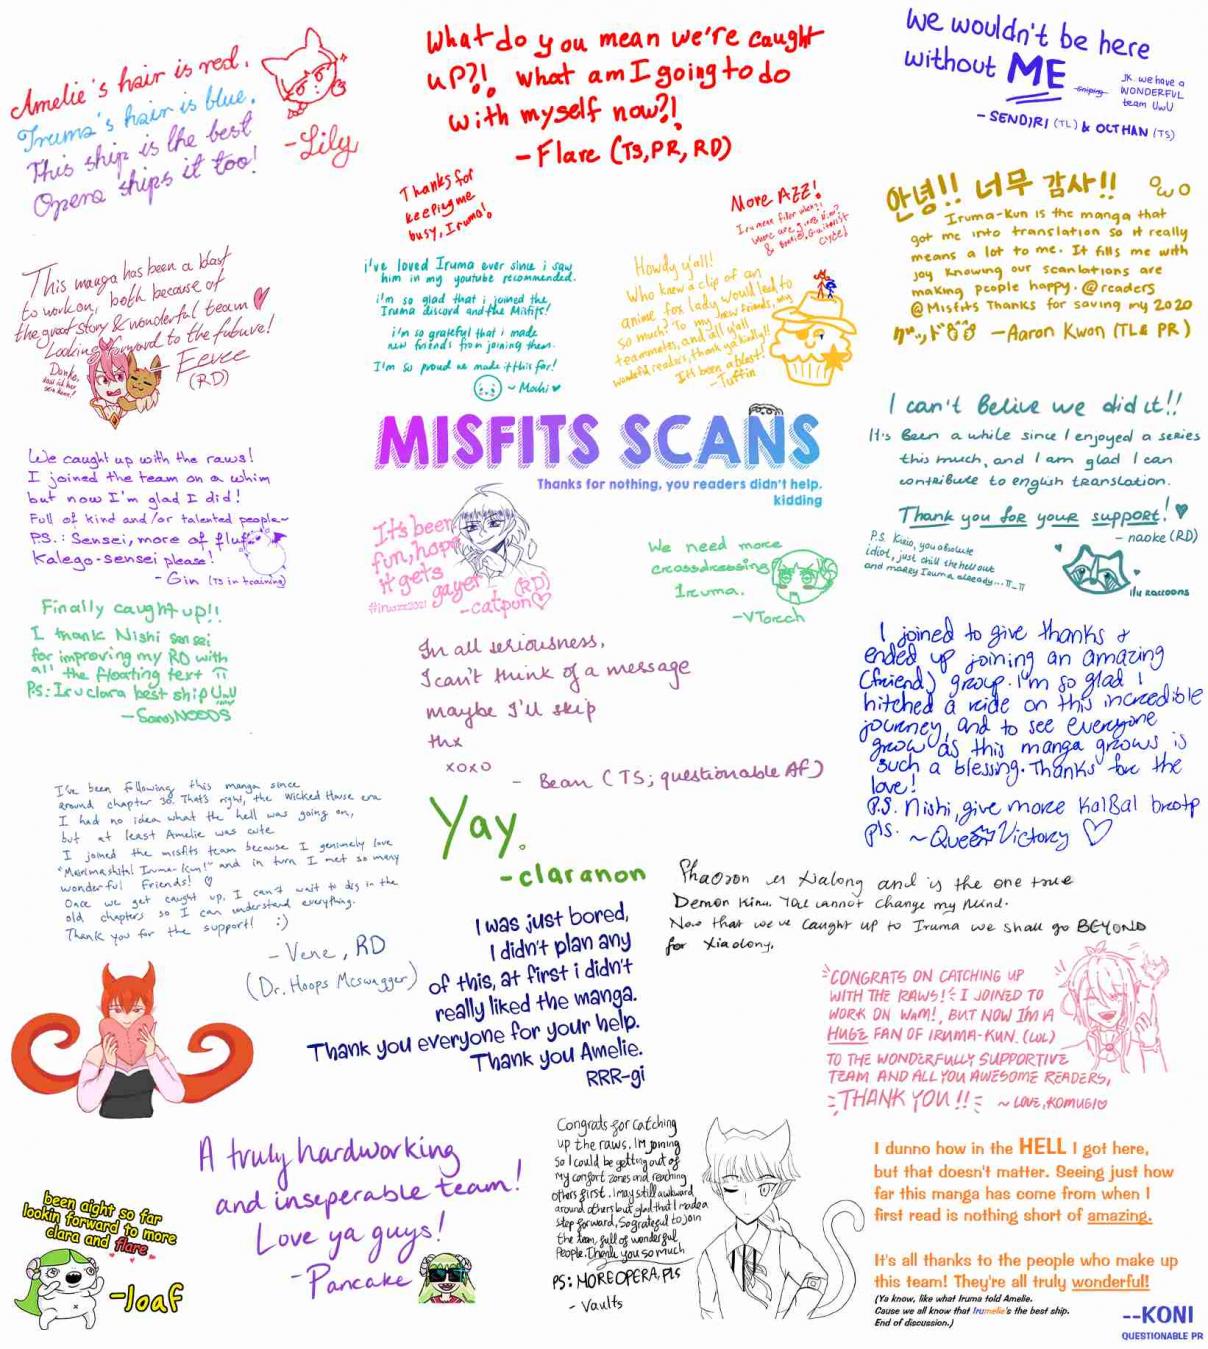 Amelie's hair is red.
Iruma's hair is blue.
This ship is the best
Opera ships it too!
-Lily
What do you mean we're caught
up?!, what am I going to do
with myself now?!
-Flare (TS,PR,RD)
Thanks for
keeping me
busy, Iruma!
More AZZ!
We wouldn't be here
without ME
JK we have a
WONDERFUL
team UwU
- SENDIRI (TL) & OCTHAN (TS)
안녕!! 너무 감사!!
Iruma-Kun is the manga that
got me into translation so it really
means a lot to me. It fills me with
joy knowing our scanlations are
making people happy. @readers
@Misfits Thanks for saving my 2020
グッド —Aaron Kwon (TL& PR)
This manga has been a blast
to work on, both because of
the great story & wonderful team
Looking forward to the future!
- Eevee
(RD)
i've loved Iruma ever since i saw
him in my youtube recommended.
i'm so glad that i joined the
Iruma discord and the Misfits!
i'm so grateful that i made
new friends from joining them.
I'm so proud we made it this far!
~ Mochi
Howdy y'all!
Who knew a clip of an
anime fox lady would lead to
so much! To my new friends, my
teammates, and all y'all
wonderful readers, thank ye kindly!!
It's been a blast!
-Tuffin
I can't Belive we did it!!
It's Been a while since I enjoyed a series
this much, and I am glad I can
contribute to english translation.
Thank you for your support!
- naoke (RD)
P.S. Kirio, you absolute
idiot, just chill the hell out
and marry Iruma already...π_π
iru raccoons
MISFITS SCANS
Thanks for nothing, you readers didn't help.
kidding
We caught up with the raws!
I joined the team on a whim
but now I'm glad I did!
Full of kind and/or talented people~
P.S.: Sensei, more of fluf
Kalego-sensei please!
- Gin (TS in training)
It's been
fun, hope
it gets
gayer
#iruazz2021
(RD)
-catpun♡
We need more
crossdressing
Iruma.
-VTorch
Finally caught up!!
I thank Nishi sensei
for improving my RD with
all the floating text
PS: Iruclara best ship UwU
-SansNOODS
In all seriousness,
I can't think of a message
maybe I'll skip
thx
xoxo
- Bean (TS; questionable AF)
I joined to give thanks &
ended up joining an amazing
(friend) group. I'm so glad I
hitched a ride on this incredible
journey, and to see everyone
grow as this manga grows is
such a blessing. Thanks for the
love!
P.S. Nishi, give more KalBal brotp
pls. ~Queen Victory ♡
I've been following this manga since
around chapter 30. That's right, the Wicked House era
I had no idea what the hell was going on,
but at least Amelie was cute
I joined the misfits team because I genuinely love
"Mairimashita! Iruma-Kun!" and in turn I met so many
wonderful friends! ♡
Once we get caught up, I can't wait to dig in the
old chapters so I can understand everything.
Thank you for the support! :)
- Vene, RD
(Dr. Hoops Mcswagger)
Yay.
-claranon
I was just bored,
I didn't plan any
of this, at first i didn't
really liked the manga.
Thank you everyone for your help.
Thank you Amelie.
RRR-gi
and is the one true
Demon King. You cannot change my mind.
Now that we've caught up to Iruma we shall go BEYOND
for Xiaolong.
CONGRATS ON CATCHING UP
WITH THE RAWS! I JOINED TO
WORK ON WAM!, BUT NOW I'M A
HUGE FAN OF IRUMA-KUN. (LOL)
TO THE WONDERFULLY SUPPORTIVE
TEAM AND ALL YOU AWESOME READERS,
THANK YOU!! ~ LOVE, KOMUGI♡
A truly hardworking
and inseperable team!
Love ya guys!
-Pancake
been aight so far
lookin forward to more
clara and flare
-loaf
Congrats for catching
up the raws. I'm joining
so I could be getting out of
my confort zones and reaching
others first. I may still awkward
around others but glad that I made a
step forward. So grateful to join
the team, full of wonderful
people. Thank you so much
PS: MORE OPERA, PLS
- Vaults
I dunno how in the HELL I got here,
but that doesn't matter. Seeing just how
far this manga has come from when I
first read is nothing short of amazing.
It's all thanks to the people who make up
this team! They're all truly wonderful!
(Ya know, like what Iruma told Amelie.
Cause we all know that Irumelie's the best ship.
End of discussion.)
--KONI
QUESTIONABLE PR